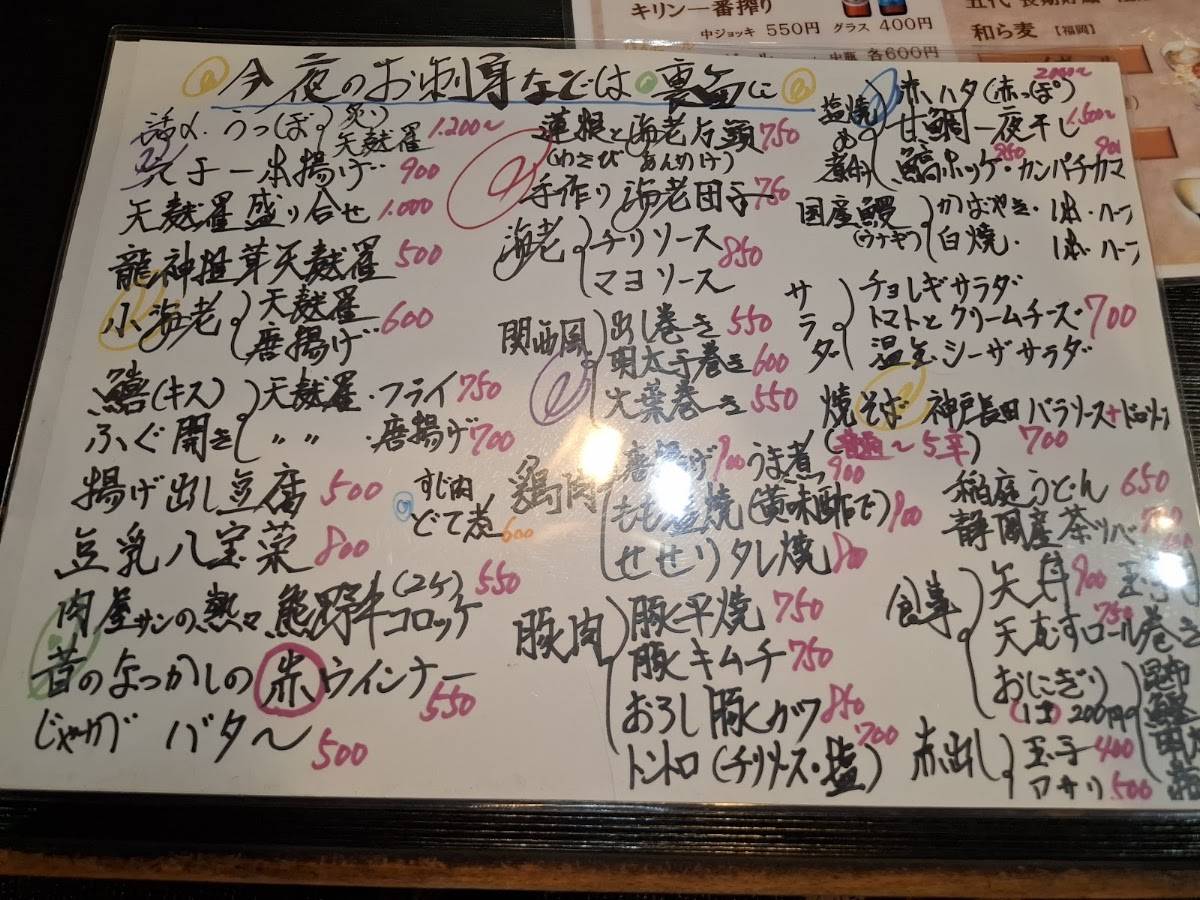 キリン一番搾り
中ジョッキ 550円 グラス 400円
各600円
和ら麦 【福岡】
今夜のお刺身などは裏面に
うつぼ 炙り 天麩羅 1,200〜
穴子一本揚げ 900
天麩羅盛り合せ 1,000
龍神椎茸天麩羅 500
小海老 天麩羅 唐揚げ 600
鱚(キス) 天麩羅・フライ 750
ふぐ開き 〃 〃 ・唐揚げ 700
揚げ出し豆腐 500
すじ肉 どて煮 600
豆乳八宝菜 800
肉屋サンの熱々熊野牛コロッケ (2ケ) 550
昔のなつかしの 赤 ウインナー 550
じゃがバタ〜 500
蓮根と海老万頭 750
(わさびあんかけ)
手作り海老団子 750
海老 チリソース マヨソース 850
関西風 出し巻き 550
明太子巻き 600
大葉巻き 550
鶏肉 唐揚げ 900 うま煮 900
もも塩焼(黄味酢で) 900
せせりタレ焼 800
豚肉 豚平焼 750
豚キムチ 750
おろし豚カツ 850
トントロ(チリソース・塩) 700
塩焼 煮付 赤ハタ(赤っぽ)
甘鯛一夜干し 1,500〜
縞ホッケ 850 ・カンパチカマ
国産鰻 (ウナギ) かばやき・1本・ハーフ
白焼・ 1本・ハーフ
サラダ チョレギサラダ
トマトとクリームチーズ 700
温玉シーザサラダ
焼そば 神戸長田 バラソース+ドロソース
(普通〜5辛) 700
稲庭うどん 650
静岡産茶ソバ
食事 天丼 900
天むすロール巻き 750
おにぎり
(1コ) 200円
赤出し 玉子 400
アサリ 500